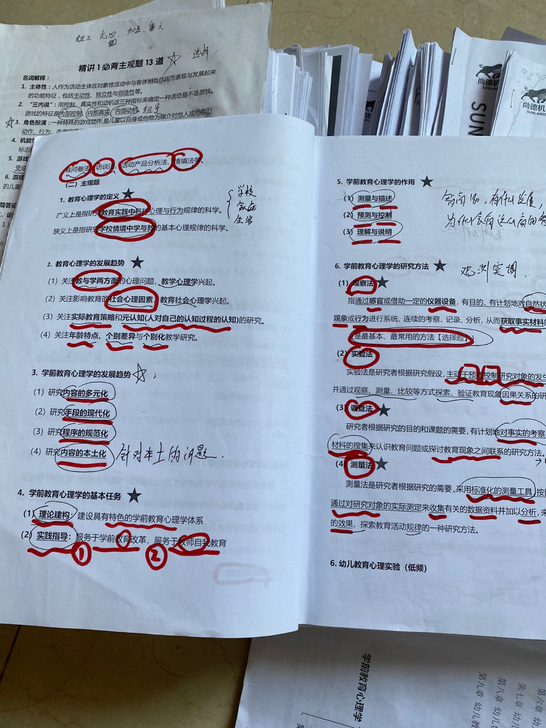 精讲1必背主观题13道
名词解释：
1. 主体性：人作为活动主体在对象性活动中与客体相互作用而表现与发展起来
的功能特征，包括主动性、独立性与创造性等。
2. "三内说"：用控制、真实性和动机这三种指标来确定一种活动是不是游戏。
游戏的特征是内部控制、内部真实、内部动机
3. 角色扮演：一种特殊的游戏动作，是儿童以自身或他物为媒介对他人或他物的
尚德机
SUN
SUNLANDS
有问卷法、访谈法、活动产品分析法、情境法等。
（二）主观题
1. 教育心理学的定义 ★
广义上是指研究教育实践中各种心理与行为规律的科学。
狭义上是指研究学校情境中学与教的基本心理规律的科学。
学校
家庭
2. 教育心理学的发展趋势 ★
（1）关注教与学两方面的心理问题，教学心理学兴起。
（2）关注影响教育的社会心理因素，教育社会心理学兴起。
（3）关注实际教育策略和元认知(人对自己的认知过程的认知)的研究。
（4）关注年龄特点、个别差异与个别化教学研究。
3. 学前教育心理学的发展趋势 ☆
（1）研究内容的多元化
（2）研究手段的现代化
（3）研究程序的规范化
（4）研究内容的本土化 针对本土的问题
4. 学前教育心理学的基本任务 ★
（1）理论建构：建设具有特色的学前教育心理学体系
（2）实践指导：服务于学前教育改革，服务于教师自我教育
① ②
5. 学前教育心理学的作用 ★
（1）测量与描述
（2）预测与控制
（3）理解与说明
6. 学前教育心理学的研究方法 ★
观测实调
（1）观察法 ★
指通过感官或借助一定的仪器设备，有目的、有计划地对自然状
现象或行为进行系统、连续的考察、记录、分析，从而获取事实材料
是最基本、最常用的方法【选择题】
（2）实验法 ★
实验法是研究者根据研究假设，主动干预或控制研究对象的发生
并通过观察、测量、比较等方式探索、验证教育现象因果关系的研
（3）调查法 ★
研究者根据研究的目的和课题的需要，有计划地对事实的考察
材料的搜集来认识教育问题或探讨教育现象之间联系的研究方法。
（4）测量法 ★
测量法是研究者根据研究的需要，采用标准化的测量工具，按
通过对研究对象的实际测定来收集有关的数据资料并加以分析，来
的效果，探索教育活动规律的一种研究方法。
6. 幼儿教育心理实验（低频）
学前教育心理学
第九章 幼儿
第八章 幼儿
第七章 幼